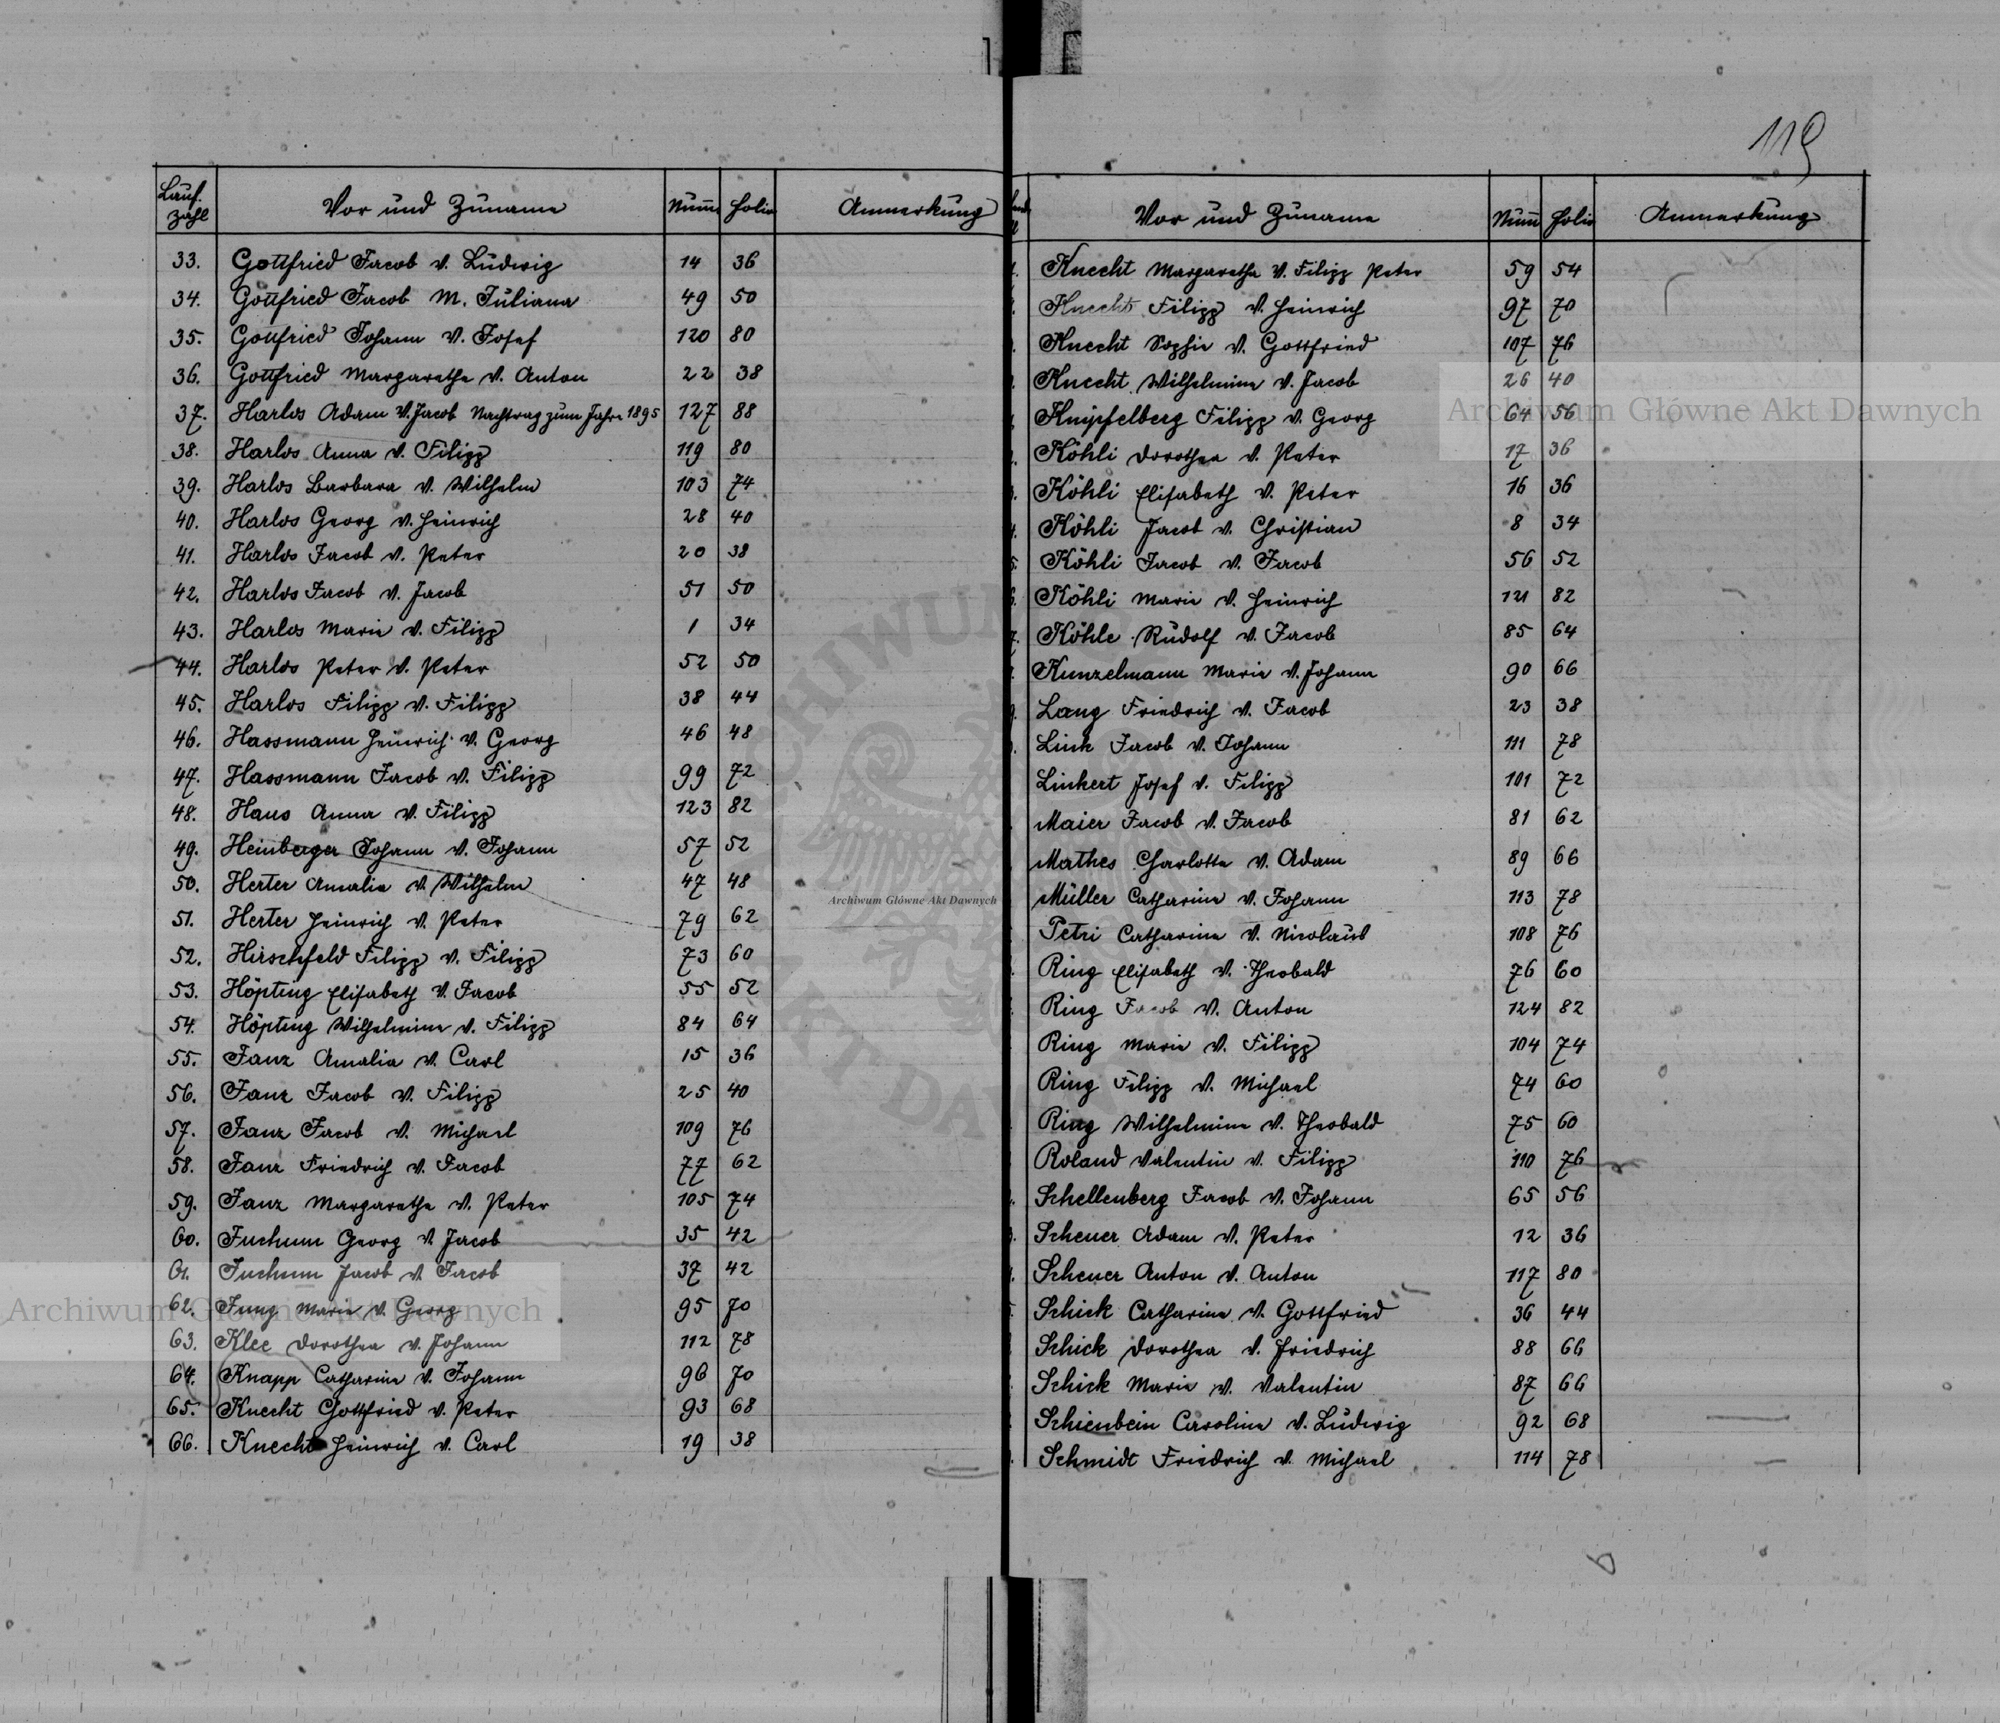 119
Lauf. zahl Vor und Zuname Num̄ Folio Anmerkung
33. Gottfried Jacob v. Ludwig 14 36
34. Gottfried Jacob M. Juliana 49 50
35. Gottfried Johann v. Josef 120 80
36. Gottfried Margaretha v. Anton 22 38
37. Harlos Adam v. Jacob Nachtrag zum Jahre 1895 127 88
38. Harlos Anna v. Filipp 119 80
39. Harlos Barbara v. Wilhelm 103 74
40. Harlos Georg v. Heinrich 28 40
41. Harlos Jacob v. Peter 20 38
42. Harlos Jacob v. Jacob 51 50
43. Harlos Marie v. Filipp 1 34
44. Harlos Peter v. Peter 52 50
45. Harlos Filipp v. Filipp 38 44
46. Hassmann Heinrich v. Georg 46 48
47. Hassmann Jacob v. Filipp 99 72
48. Haus Anna v. Filipp 123 82
49. Heinberger Johann v. Johann 57 52
50. Herter Amalie v. Wilhelm 47 48
51. Herter Heinrich v. Peter 79 62
52. Hirschfeld Filipp v. Filipp 73 60
53. Höpting Elisabeth v. Jacob 55 52
54. Höpting Wilhelmine v. Filipp 84 64
55. Janz Amalia v. Carl 15 36
56. Janz Jacob v. Filipp 25 40
57. Janz Jacob v. Michael 109 76
58. Janz Friedrich v. Jacob 77 62
59. Janz Margarethe v. Peter 105 74
60. Juchum Georg v. Jacob 35 42
61. Juchum Jacob v. Jacob 37 42
62. Jung Marie v. Georg 95 70
63. Klee Dorothea v. Johann 112 78
64. Knapp Catharine v. Johann 96 70
65. Knecht Gottfried v. Peter 93 68
66. Knecht Heinrich v. Carl 19 38
Vor und Zuname Num̄ Folio Anmerkung
Knecht Margaretha v. Filipp Peter 59 54
Knecht Filipp v. Heinrich 97 70
Knecht Sophie v. Gottfried 107 76
Knecht Wilhelmine v. Jacob 26 40
Knipfelberg Filipp v. Georg 64 56
Köhli Dorothea v. Peter 17 36
Köhli Elisabeth v. Peter 16 36
Köhli Jacob v. Christian 8 34
Köhli Jacob v. Jacob 56 52
Köhli Marie v. Heinrich 121 82
Köhle Rudolf v. Jacob 85 64
Kunzelmann Marie v. Johann 90 66
Lang Friedrich v. Jacob 23 38
Link Jacob v. Johann 111 78
Linkert Josef v. Filipp 101 72
Maier Jacob v. Jacob 81 62
Mathes Charlotte v. Adam 89 66
Müller Catharine v. Johann 113 78
Petri Catharine v. Nicolaus 108 76
Ring Elisabeth v. Theobald 76 60
Ring Jacob v. Anton 124 82
Ring Marie v. Filipp 104 74
Ring Filipp v. Michael 74 60
Ring Wilhelmine v. Theobald 75 60
Roland Valentin v. Filipp 110 76
Schellenberg Jacob v. Johann 65 56
Scheuer Adam v. Peter 12 36
Scheuer Anton v. Anton 117 80
Schick Catharine v. Gottfried 36 44
Schick Dorothea v. Friedrich 88 66
Schick Marie v. Valentin 87 66
Schienbein Caroline v. Ludwig 92 68
Schmidt Friedrich v. Michael 114 78
Archiwum Główne Akt Dawnych
Archiwum Główne Akt Dawnych
Archiwum Główne Akt Dawnych